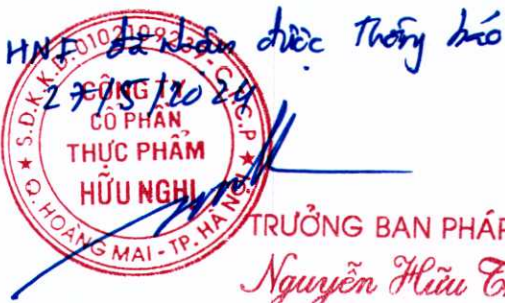 HNF đã nhận được thông báo
27/5/2024
S.D.K.K.D:0102109239-C.T.C.P
CÔNG TY
CỔ PHẦN
THỰC PHẨM
HỮU NGHỊ
Q.HOÀNG MAI - TP.HÀ NỘI
TRƯỞNG BAN PHÁP
Nguyễn Hữu